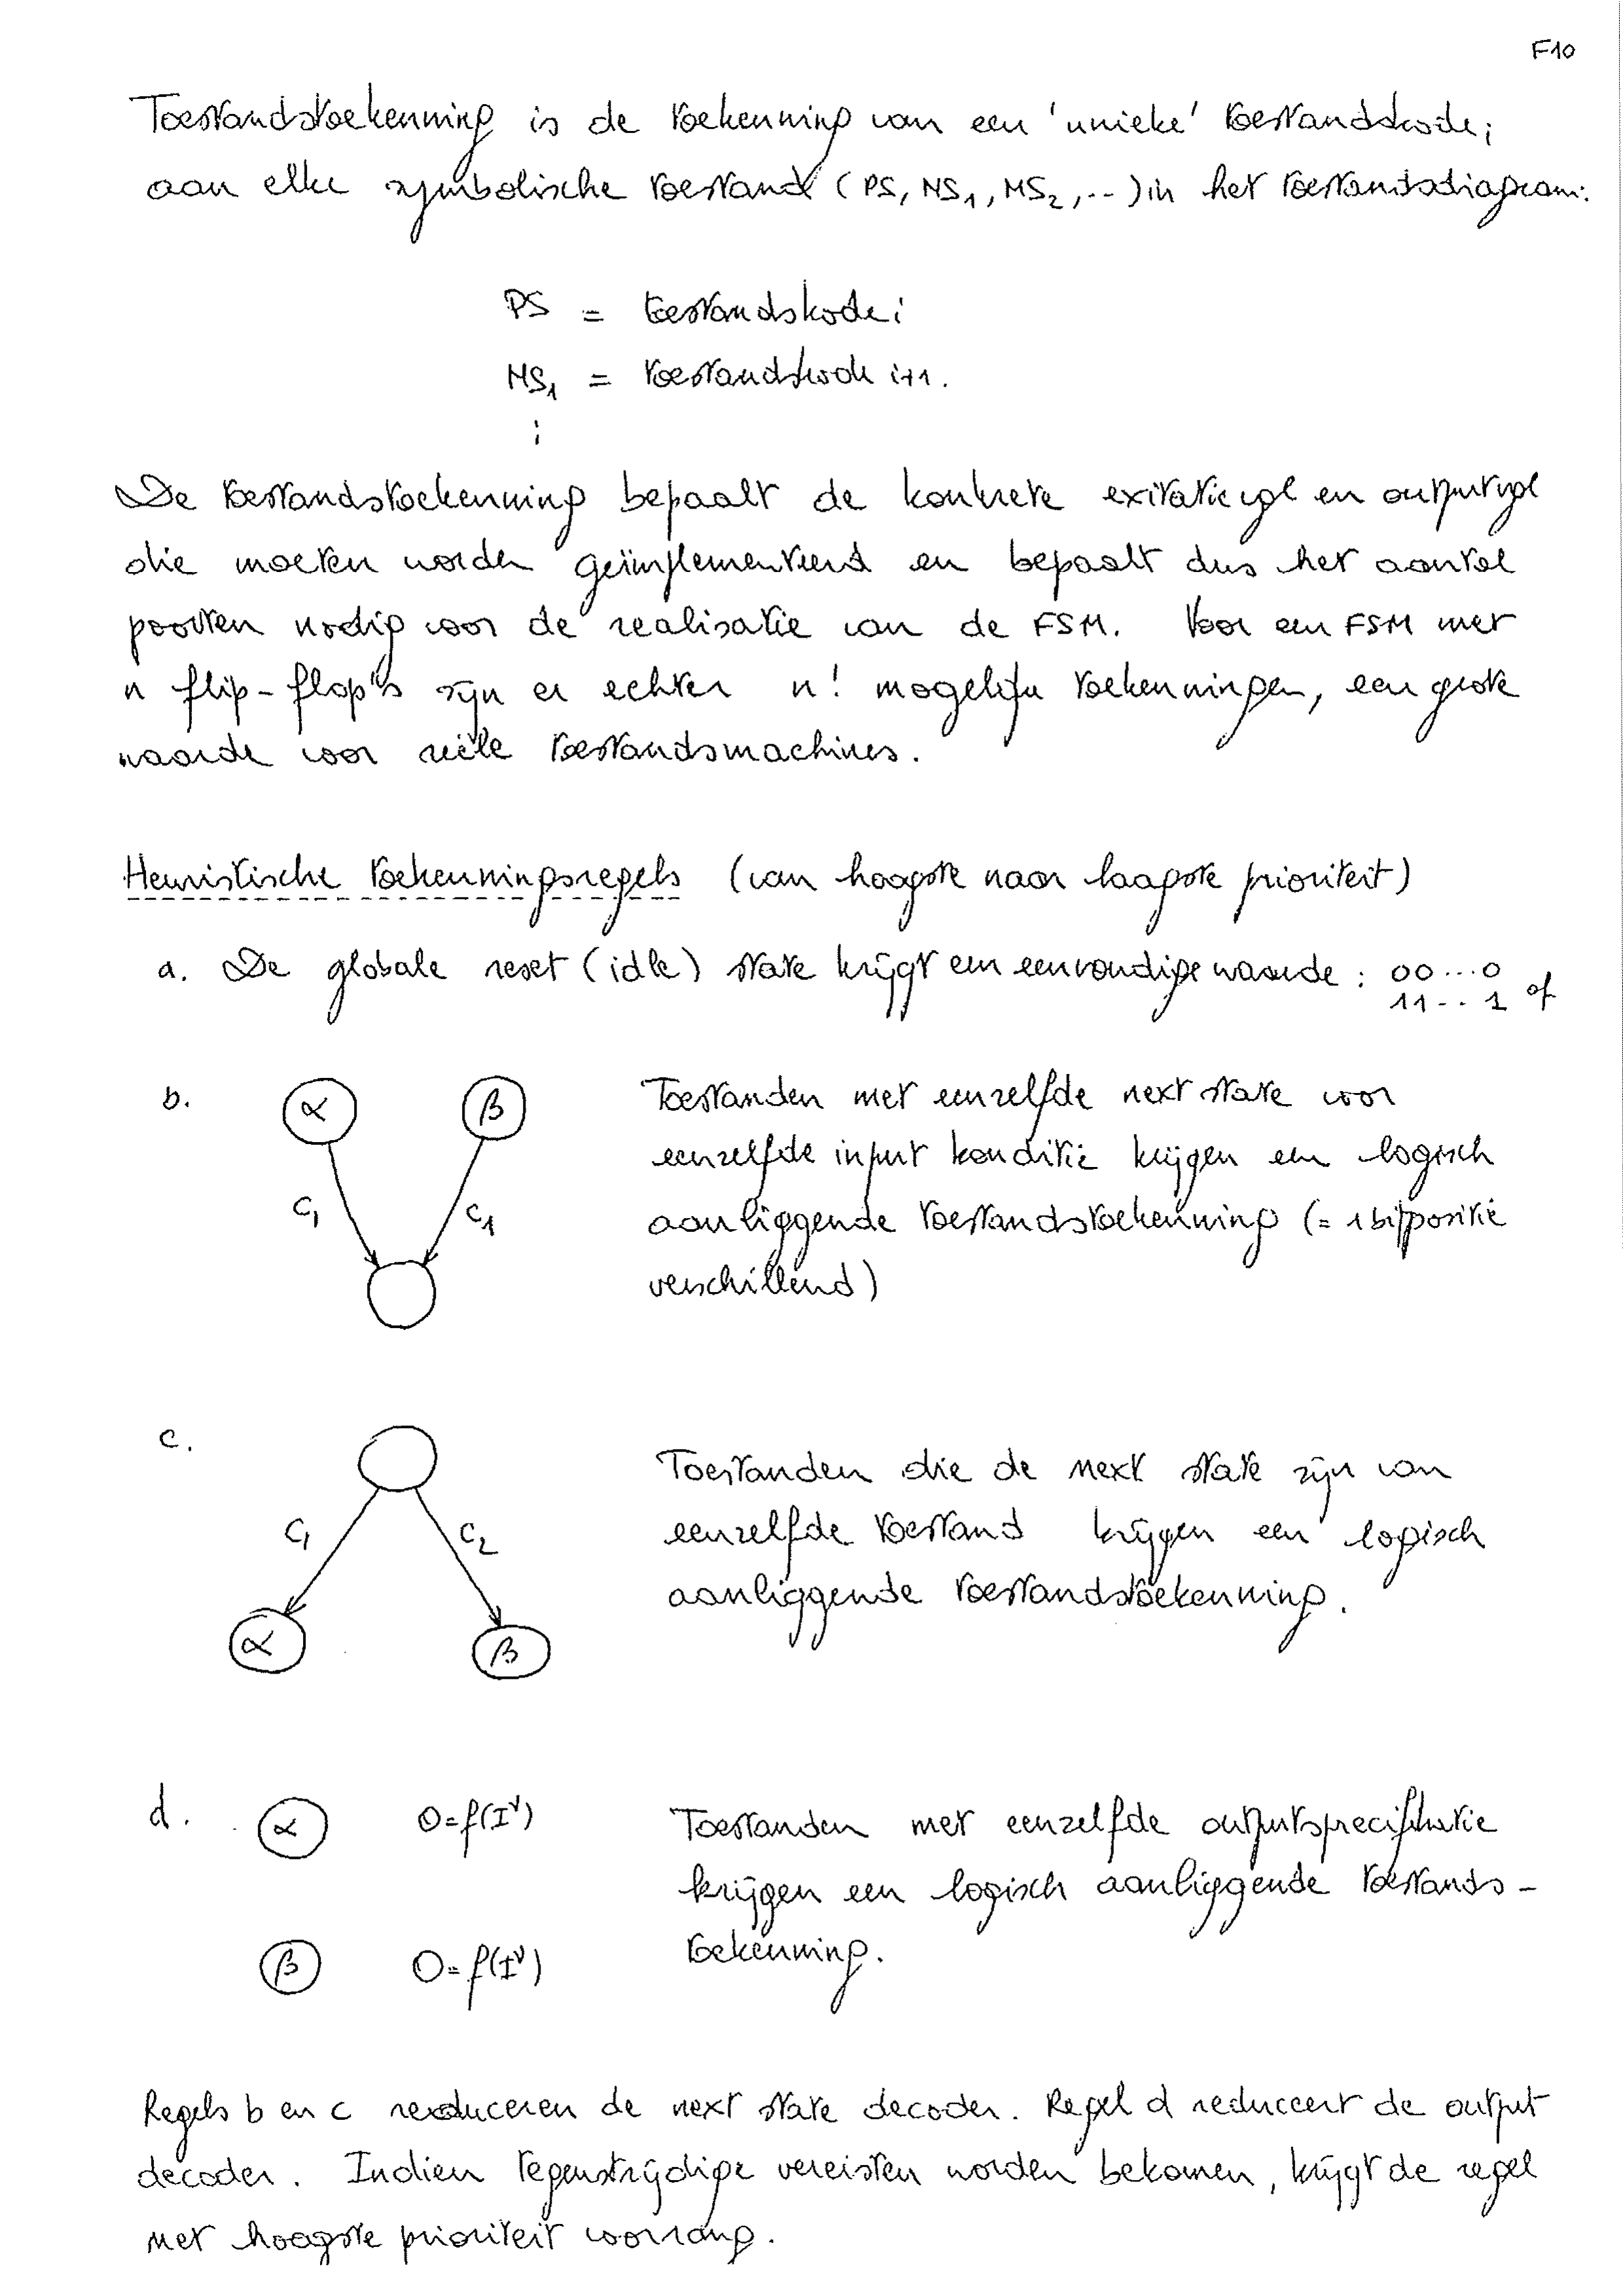 F10
Toestandstoekenning is de toekenning van een 'unieke' toestandskode i
aan elke symbolische toestand (PS, NS1, NS2, ..) in het toestandsdiagram:
PS = toestandskode i
NS1 = toestandskode i+1.
⋮
De toestandstoekenning bepaalt de konkrete exitatie vgl en output vgl
die moeten worden geïmplementeerd en bepaalt dus het aantal
poorten nodig voor de realisatie van de FSM. Voor een FSM met
n flip-flop's zijn er echter n! mogelijke toekenningen, een grote
waarde voor reële toestandsmachines.
Heuristische toekenningsregels (van hoogste naar laagste prioriteit)
a. De globale reset (idle) state krijgt een eenvoudige waarde : 00...0
11..1 of
b. α β Toestanden met eenzelfde next state voor
eenzelfde input konditie krijgen een logisch
C1 C1 aanliggende toestandstoekenning (= 1 bitpositie
verschillend)
c. Toestanden die de next state zijn van
C1 C2 eenzelfde toestand krijgen een logisch
aanliggende toestandstoekenning.
α β
d. α O=f(I^v) Toestanden met eenzelfde outputspecifikatie
krijgen een logisch aanliggende toestands-
β O=f(I^v) toekenning.
Regels b en c reduceren de next state decoder. Regel d reduceert de output
decoder. Indien tegenstrijdige vereisten worden bekomen, krijgt de regel
met hoogste prioriteit voorrang.